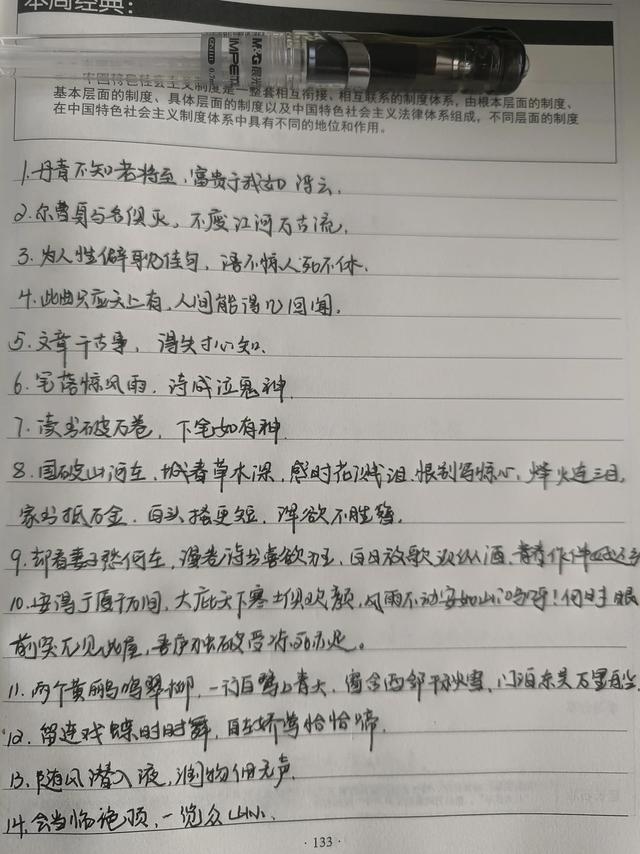 本周经典：
M&G 晨光
IMPETU
中国特色社会主义制度是一整套相互衔接、相互联系的制度体系，由根本层面的制度、
基本层面的制度、具体层面的制度以及中国特色社会主义法律体系组成，不同层面的制度
在中国特色社会主义制度体系中具有不同的地位和作用。
1.丹青不知老将至，富贵于我如浮云.
2.尔曹身与名俱灭，不废江河万古流.
3.为人性僻耽佳句，语不惊人死不休.
4.此曲只应天上有，人间能得几回闻.
5.文章千古事，得失寸心知.
6.笔落惊风雨，诗成泣鬼神.
7.读书破万卷，下笔如有神.
8.国破山河在，城春草木深，感时花溅泪.恨别鸟惊心，烽火连三月，
家书抵万金，白头搔更短，浑欲不胜簪.
9.却看妻子愁何在，漫卷诗书喜欲狂，白日放歌须纵酒，青春作伴
10.安得广厦千万间，大庇天下寒士俱欢颜，风雨不动安如山！呜呼！何时眼
前突兀见此屋，吾庐独破受冻死亦足。
11.两个黄鹂鸣翠柳，一行白鹭上青天，窗含西岭千秋雪，门泊东吴万里船
12.留连戏蝶时时舞，自在娇莺恰恰啼.
13.随风潜入夜，润物细无声.
14.会当临绝顶，一览众山小.
·133·